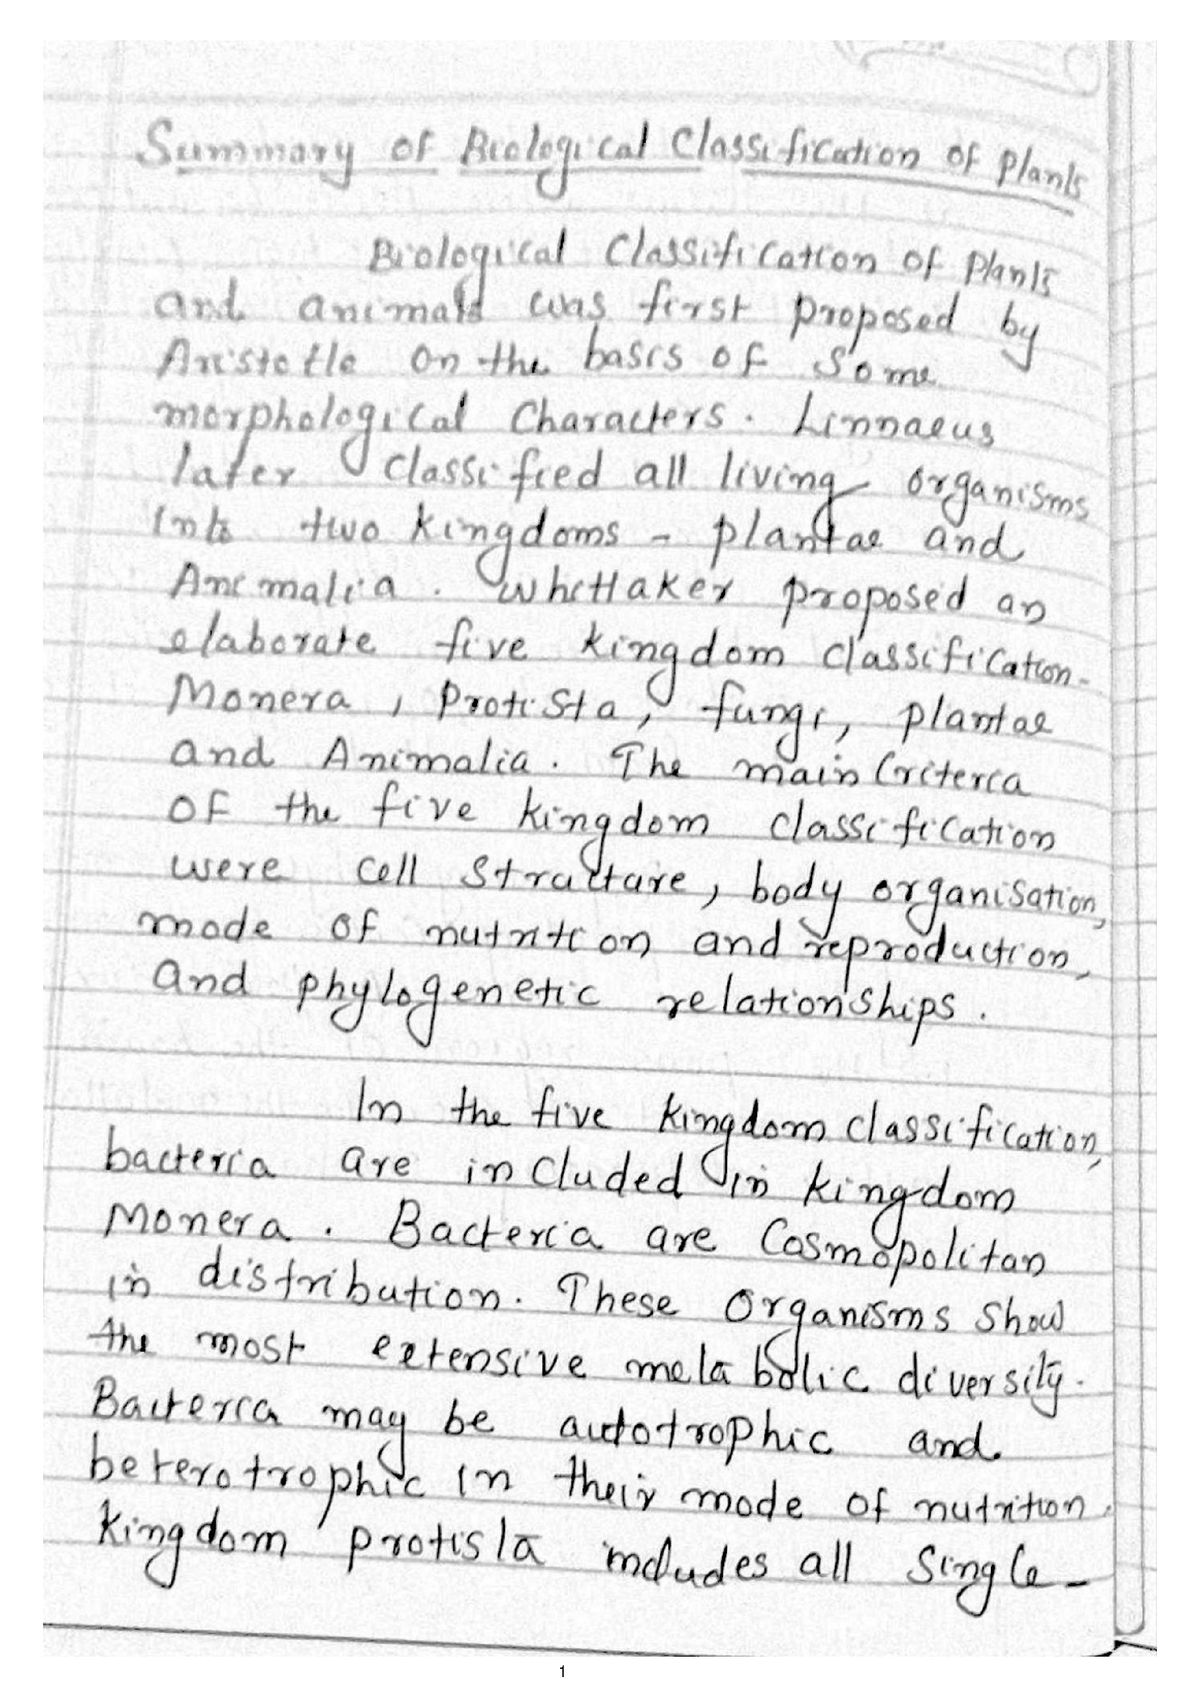 Summary of Biological Classification of Plants
Biological Classification of Plants
and animals was first proposed by
Aristotle on the basis of Some
morphological Characters. Linnaeus
later classified all living organisms
into two kingdoms - plantae and
Animalia. Whittaker proposed an
elaborate five kingdom classification-
Monera, Protista, fungi, plantae
and Animalia. The main Criteria
OF the five kingdom classification
were cell structure, body organisation,
mode of nutrition and reproduction,
and phylogenetic relationships.
In the five kingdom classification,
bacteria are included in kingdom
Monera. Bacteria are Cosmopolitan
in distribution. These Organisms Show
the most extensive metabolic diversity.
Bacteria may be autotrophic and
heterotrophic in their mode of nutrition.
Kingdom protista includes all Single-
1